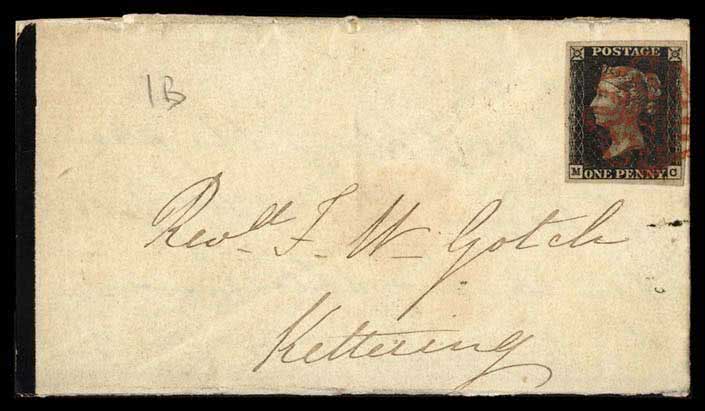 POSTAGE
1B
M ONE PENNY C
Revd. F. W. Gotch
Kettering